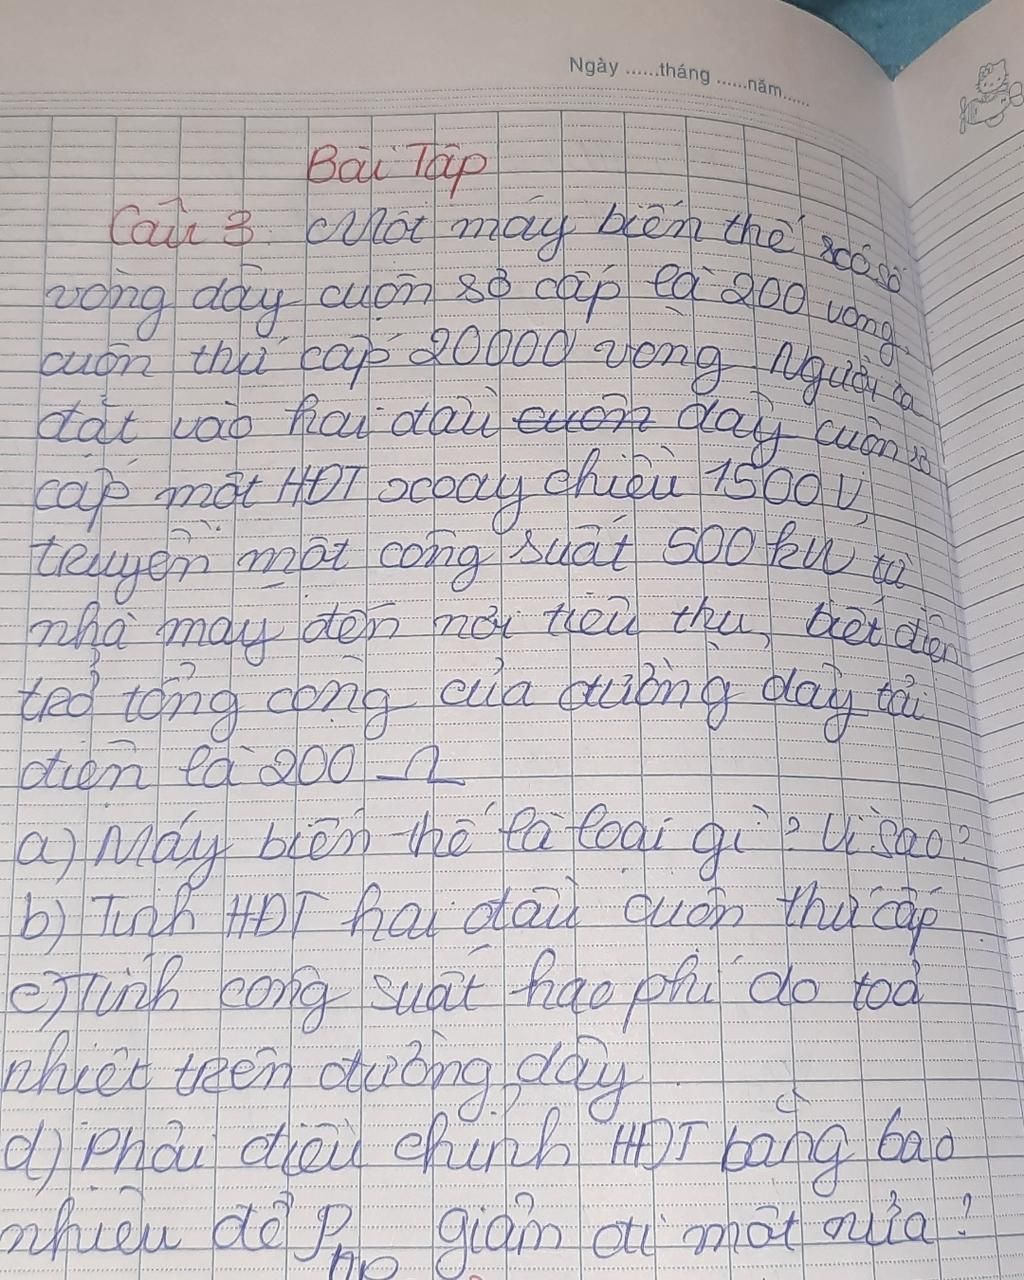 Ngày ......tháng ......năm......
Bài Tập
Câu 3. Một máy biến thế có số
vòng dây cuộn sơ cấp là 200 vòng,
cuộn thứ cấp 20000 vòng Người ta
đặt vào hai đầu dây cuộn sơ
cấp một HĐT xoay chiều 1500V,
truyền một công suất 500kW từ
nhà máy đến nơi tiêu thụ, biết điện
trở tổng cộng của đường dây tải
điện là 200 Ω
a) Máy biến thế là loại gì? Vì sao?
b) Tính HĐT hai đầu cuộn thứ cấp
c) Tính công suất hao phí do toả
nhiệt trên đường dây
d) Phải điều chỉnh HĐT bằng bao
nhiêu để Php giảm đi một nửa?